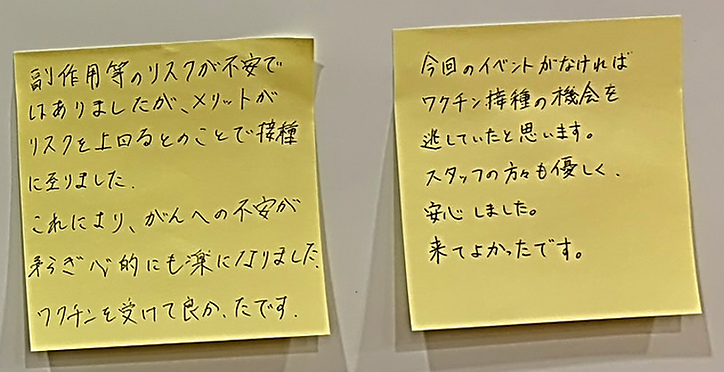 副作用等のリスクが不安で
はありましたが、メリットが
リスクを上回るとのことで接種
に至りました.
これにより、がんへの不安が
和らぎ心的にも楽になりました.
ワクチンを受けて良かったです.
今回のイベントがなければ
ワクチン接種の機会を
逃していたと思います。
スタッフの方々も優しく、
安心しました。
来てよかったです。